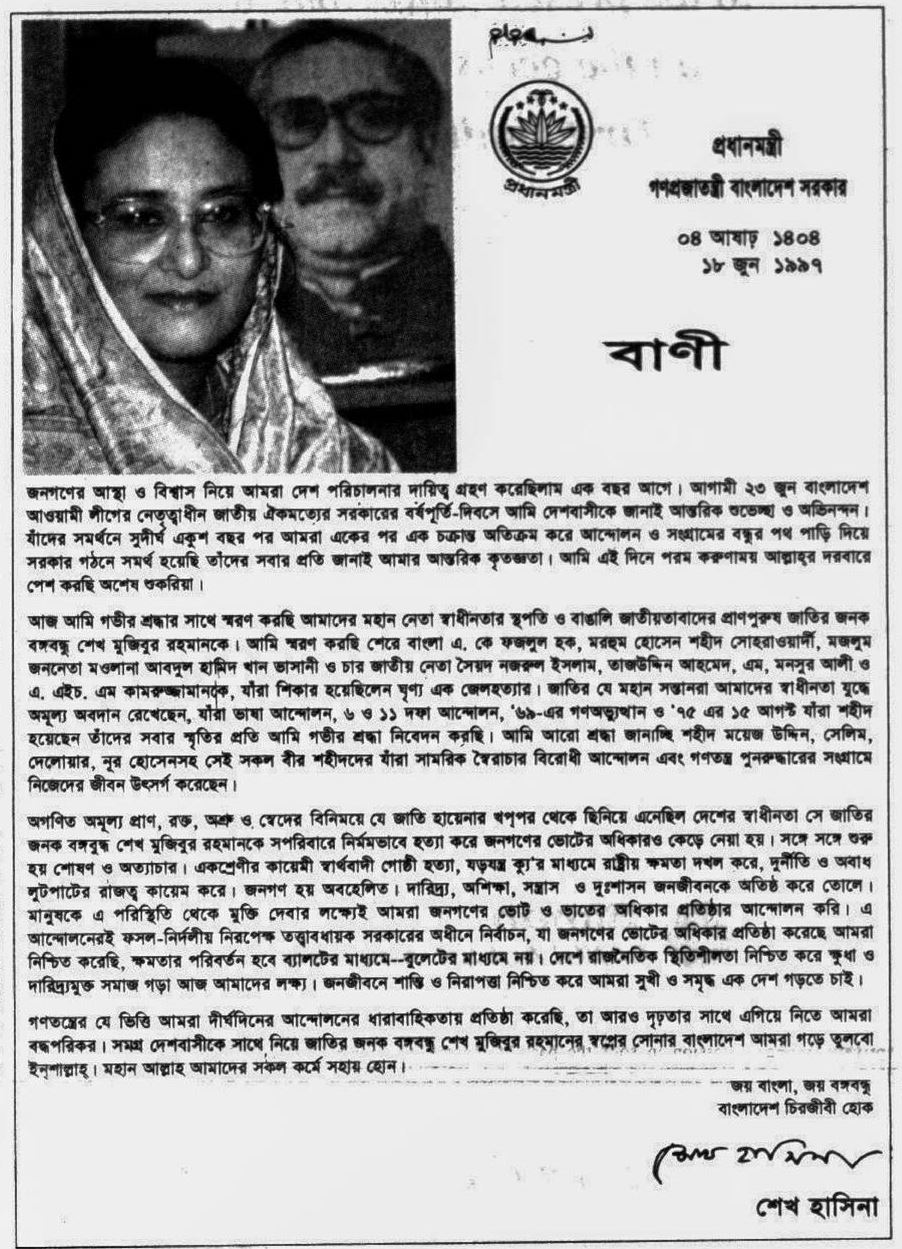 প্রধানমন্ত্রী
প্রধানমন্ত্রী
গণপ্রজাতন্ত্রী বাংলাদেশ সরকার
০৪ আষাঢ় ১৪০৪
১৮ জুন ১৯৯৭
বাণী
জনগণের আস্থা ও বিশ্বাস নিয়ে আমরা দেশ পরিচালনার দায়িত্ব গ্রহণ করেছিলাম এক বছর আগে। আগামী ২৩ জুন বাংলাদেশ
আওয়ামী লীগের নেতৃত্বাধীন জাতীয় ঐকমত্যের সরকারের বর্ষপূর্তি-দিবসে আমি দেশবাসীকে জানাই আন্তরিক শুভেচ্ছা ও অভিনন্দন।
যাঁদের সমর্থনে সুদীর্ঘ একুশ বছর পর আমরা একের পর এক চক্রান্ত অতিক্রম করে আন্দোলন ও সংগ্রামের বন্ধুর পথ পাড়ি দিয়ে
সরকার গঠনে সমর্থ হয়েছি তাঁদের সবার প্রতি জানাই আমার আন্তরিক কৃতজ্ঞতা। আমি এই দিনে পরম করুণাময় আল্লাহ্‌র দরবারে
পেশ করছি অশেষ শুকরিয়া।
আজ আমি গভীর শ্রদ্ধার সাথে স্মরণ করছি আমাদের মহান নেতা স্বাধীনতার স্থপতি ও বাঙালি জাতীয়তাবাদের প্রাণপুরুষ জাতির জনক
বঙ্গবন্ধু শেখ মুজিবুর রহমানকে। আমি স্মরণ করছি শেরে বাংলা এ. কে ফজলুল হক, মরহুম হোসেন শহীদ সোহরাওয়ার্দী, মজলুম
জননেতা মওলানা আবদুল হামিদ খান ভাসানী ও চার জাতীয় নেতা সৈয়দ নজরুল ইসলাম, তাজউদ্দিন আহমেদ, এম, মনসুর আলী ও
এ. এইচ. এম কামরুজ্জামানকে, যাঁরা শিকার হয়েছিলেন ঘৃণ্য এক জেলহত্যার। জাতির যে মহান সন্তানরা আমাদের স্বাধীনতা যুদ্ধে
অমূল্য অবদান রেখেছেন, যাঁরা ভাষা আন্দোলন, ৬ ও ১১ দফা আন্দোলন, '৬৯-এর গণঅভ্যুত্থান ও '৭৫ এর ১৫ আগস্ট যাঁরা শহীদ
হয়েছেন তাঁদের সবার স্মৃতির প্রতি আমি গভীর শ্রদ্ধা নিবেদন করছি। আমি আরো শ্রদ্ধা জানাচ্ছি শহীদ ময়েজ উদ্দিন, সেলিম,
দেলোয়ার, নূর হোসেনসহ সেই সকল বীর শহীদদের যাঁরা সামরিক স্বৈরাচার বিরোধী আন্দোলন এবং গণতন্ত্র পুনরুদ্ধারের সংগ্রামে
নিজেদের জীবন উৎসর্গ করেছেন।
অগণিত অমূল্য প্রাণ, রক্ত, অশ্রু ও স্বেদের বিনিময়ে যে জাতি হায়েনার খপ্পর থেকে ছিনিয়ে এনেছিল দেশের স্বাধীনতা সে জাতির
জনক বঙ্গবন্ধু শেখ মুজিবুর রহমানকে সপরিবারে নির্মমভাবে হত্যা করে জনগণের ভোটের অধিকারও কেড়ে নেয়া হয়। সঙ্গে সঙ্গে শুরু
হয় শোষণ ও অত্যাচার। একশ্রেণীর কায়েমী স্বার্থবাদী গোষ্ঠী হত্যা, ষড়যন্ত্র ক্যু'র মাধ্যমে রাষ্ট্রীয় ক্ষমতা দখল করে, দুর্নীতি ও অবাধ
লুটপাটের রাজত্ব কায়েম করে। জনগণ হয় অবহেলিত। দারিদ্র্য, অশিক্ষা, সন্ত্রাস ও দুঃশাসন জনজীবনকে অতিষ্ঠ করে তোলে।
মানুষকে এ পরিস্থিতি থেকে মুক্তি দেবার লক্ষ্যেই আমরা জনগণের ভোট ও ভাতের অধিকার প্রতিষ্ঠার আন্দোলন করি। এ
আন্দোলনেরই ফসল-নির্দলীয় নিরপেক্ষ তত্ত্বাবধায়ক সরকারের অধীনে নির্বাচন, যা জনগণের ভোটের অধিকার প্রতিষ্ঠা করেছে আমরা
নিশ্চিত করেছি, ক্ষমতার পরিবর্তন হবে ব্যালটের মাধ্যমে--বুলেটের মাধ্যমে নয়। দেশে রাজনৈতিক স্থিতিশীলতা নিশ্চিত করে ক্ষুধা ও
দারিদ্র্যমুক্ত সমাজ গড়া আজ আমাদের লক্ষ্য। জনজীবনে শান্তি ও নিরাপত্তা নিশ্চিত করে আমরা সুখী ও সমৃদ্ধ এক দেশ গড়তে চাই।
গণতন্ত্রের যে ভিত্তি আমরা দীর্ঘদিনের আন্দোলনের ধারাবাহিকতায় প্রতিষ্ঠা করেছি, তা আরও দৃঢ়তার সাথে এগিয়ে নিতে আমরা
বদ্ধপরিকর। সমগ্র দেশবাসীকে সাথে নিয়ে জাতির জনক বঙ্গবন্ধু শেখ মুজিবুর রহমানের স্বপ্নের সোনার বাংলাদেশ আমরা গড়ে তুলবো
ইন্‌শাল্লাহ্‌। মহান আল্লাহ আমাদের সকল কর্মে সহায় হোন।
জয় বাংলা, জয় বঙ্গবন্ধু
বাংলাদেশ চিরজীবী হোক
শেখ হাসিনা
শেখ হাসিনা